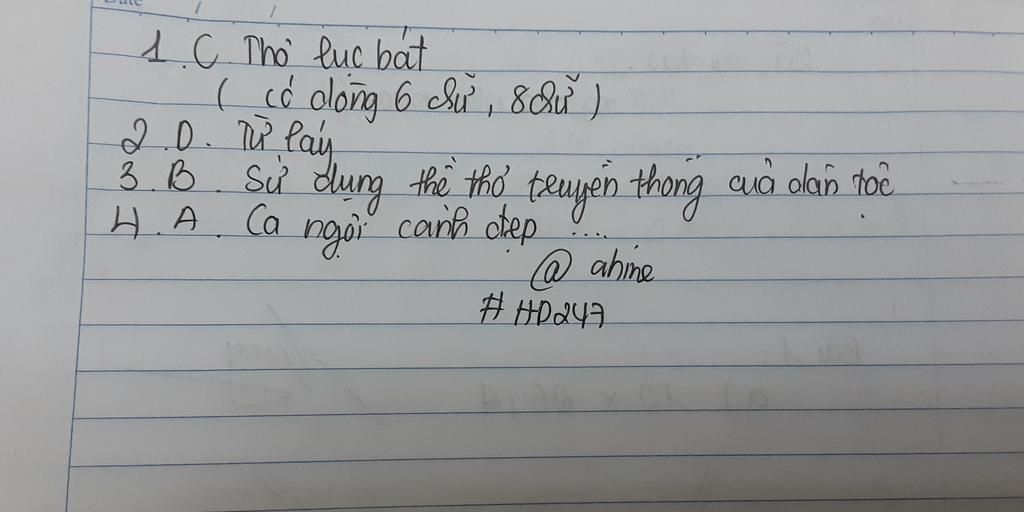 Date / /
1. C Thơ lục bát
( có dòng 6 chữ, 8 chữ )
2. D. Từ láy
3. B. Sử dụng thể thơ truyền thống của dân tộc
4. A. Ca ngợi cảnh đẹp ....
@ ahine
# HD247